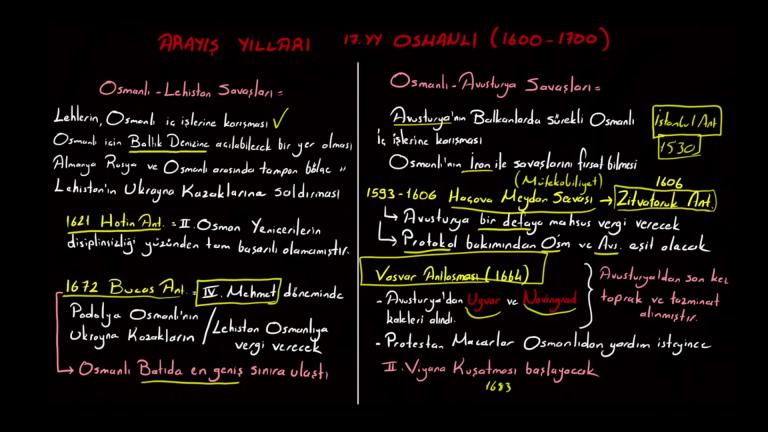 ARAYIŞ YILLARI 17.YY OSMANLI (1600-1700)
Osmanlı-Lehistan Savaşları =
Lehlerin, Osmanlı iç işlerine karışması ✓
Osmanlı için Baltık Denizine açılabilecek bir yer olması
Almanya Rusya ve Osmanlı arasında tampon bölge "
Lehistan'ın Ukrayna Kazaklarına saldırması
1621 Hotin Ant. = II. Osman Yeniçerilerin
disiplinsizliği yüzünden tam başarılı olamamıştır.
1672 Bucaş Ant. = IV. Mehmet döneminde
Podolya Osmanlı'nın
Ukrayna Kazakların / Lehistan Osmanlıya
vergi verecek
→ Osmanlı Batıda en geniş sınıra ulaştı
Osmanlı-Avusturya Savaşları =
Avusturya'nın Balkanlarda sürekli Osmanlı
iç işlerine karışması
İstanbul Ant
1530
Osmanlı'nın İran ile savaşlarını fırsat bilmesi
(Mütekabiliyet) 1606
1593-1606 Haçova Meydan Savaşı → Zitvatoruk Ant.
→ Avusturya bir defaya mahsus vergi verecek
→ Protokol bakımından Osm ve Avs. eşit olacak
Vasvar Antlaşması (1664)
- Avusturya'dan Uyvar ve Novingrad
kaleleri alındı.
Avusturya'dan son kez
toprak ve tazminat
alınmıştır.
- Protestan Macarlar Osmanlıdan yardım isteyince
II. Viyana Kuşatması başlayacak
1683